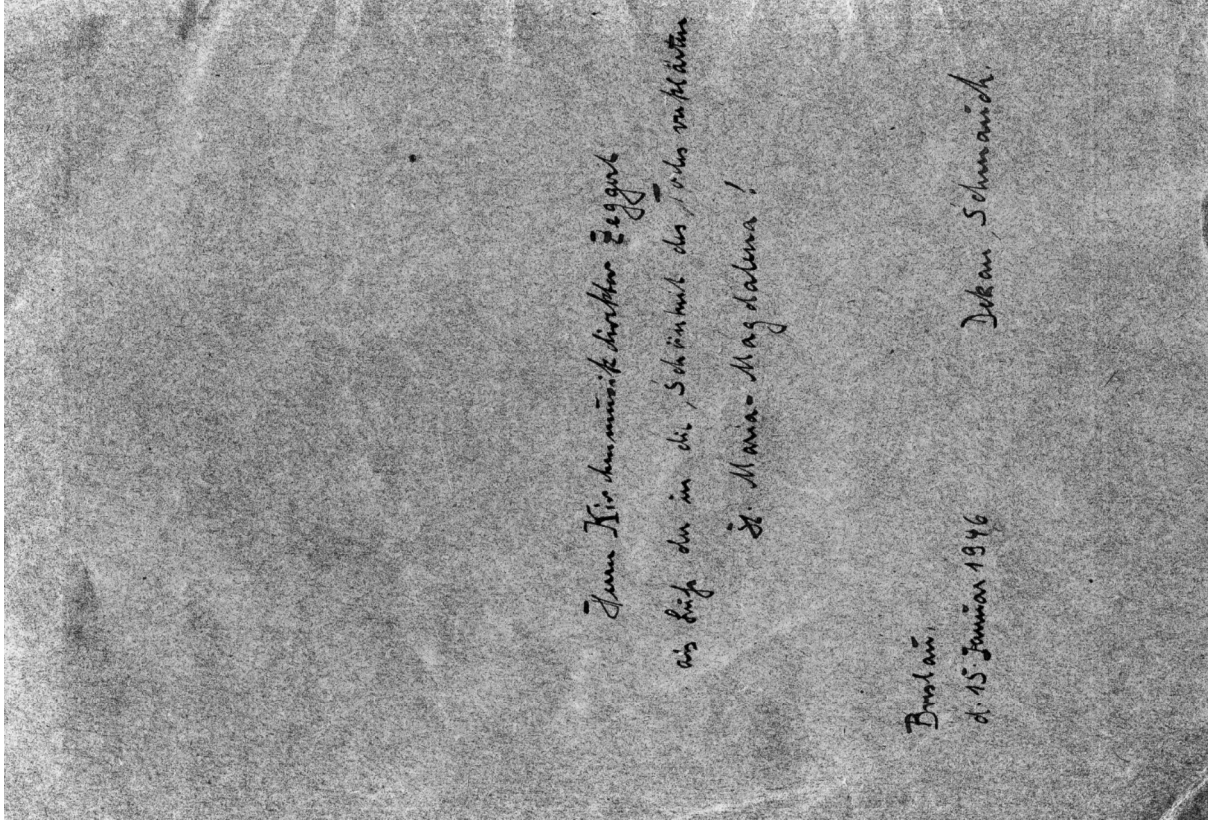 Herrn Kirchenmusikdirektor Zeggert
in die Schönheit des verklärten
St. Maria-Magdalena!
Breslau,
d. 15. Januar 1946
Dekan Schmauch.